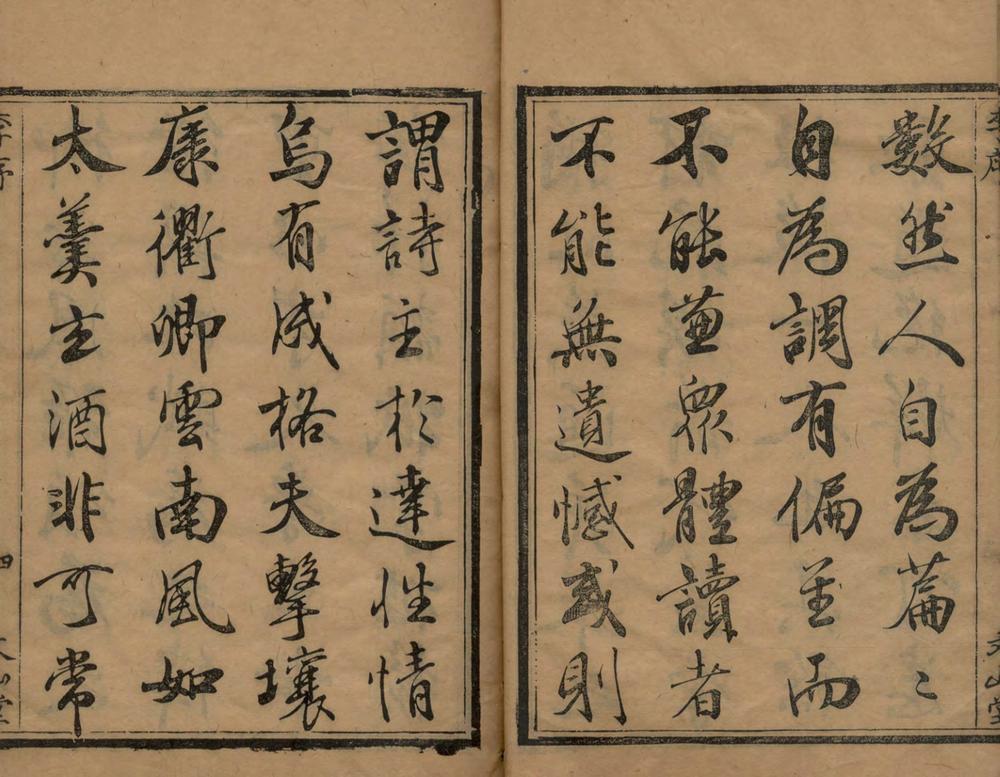 數然人自為篇〻
自為調有偏至而
不能兼眾體讀者
不能無遺憾或則
謂詩主於達性情
烏有成格夫擊壤
康衢卿雲南風如
太羹玄酒非可常
四